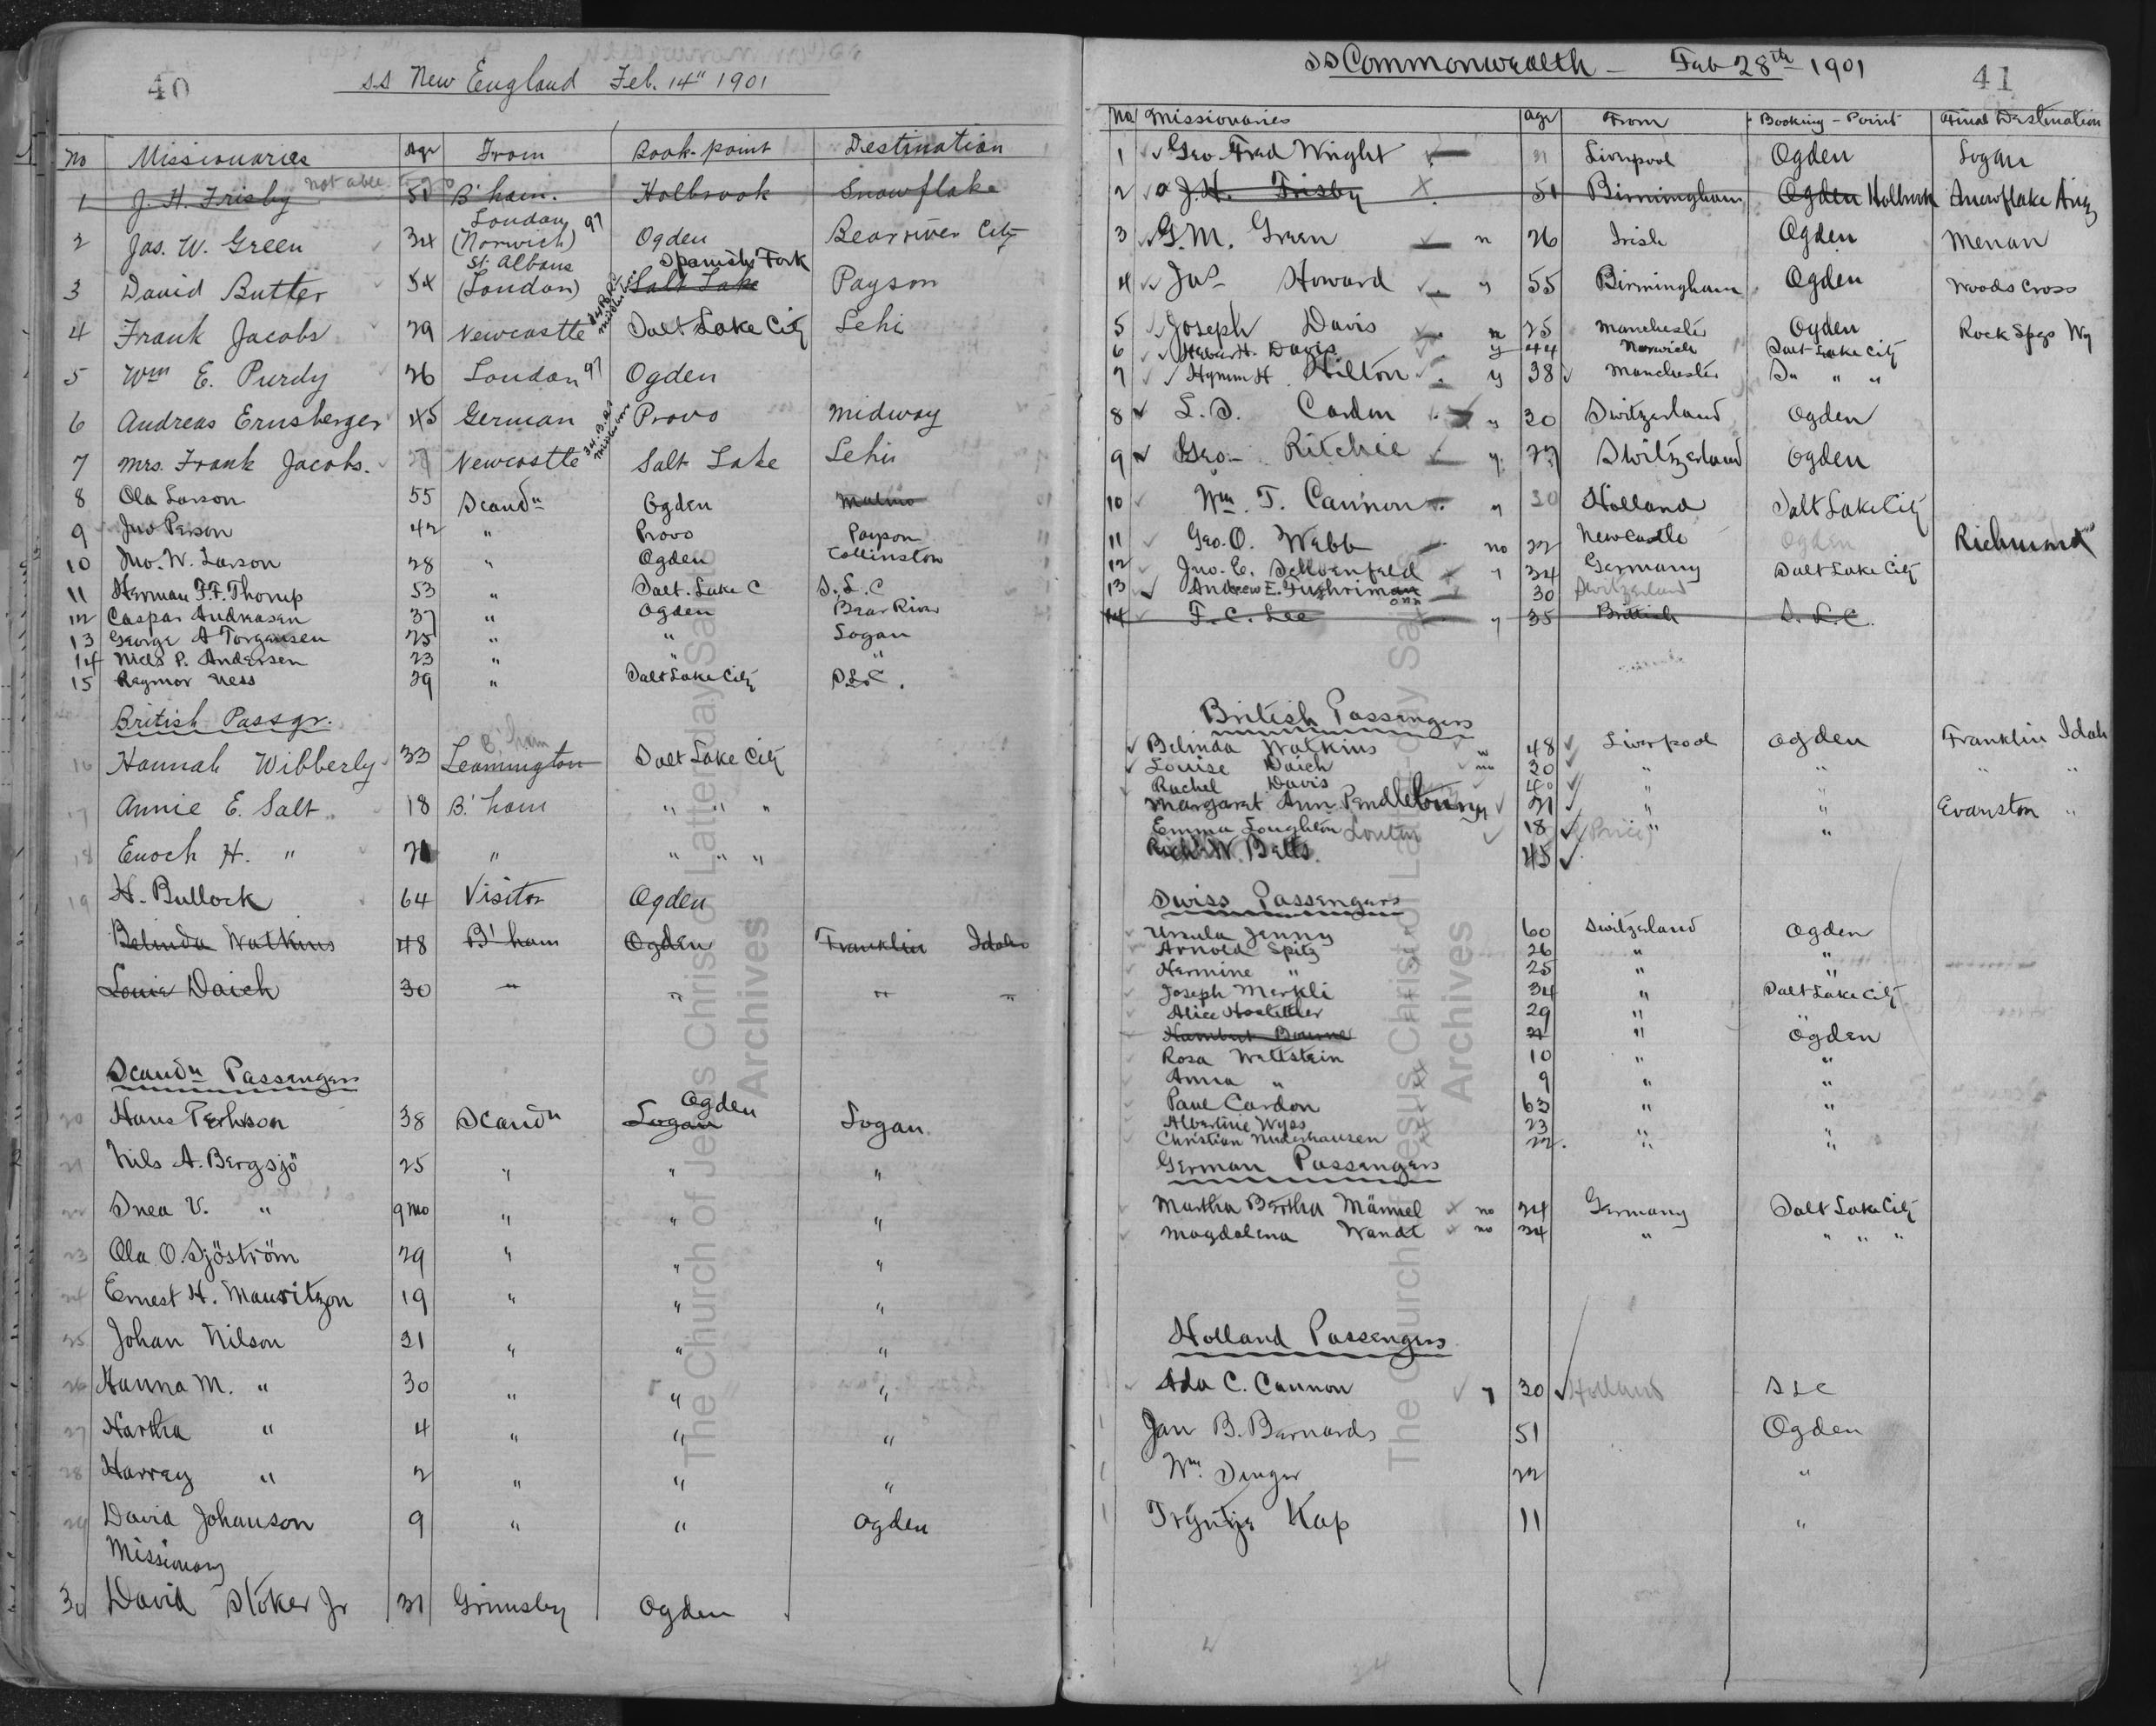 40
SS New England Feb. 14" 1901
No Missionaries Age From Book-point Destination
1 J. H. Frisby not able to go 51 B'ham. Holbrook Snowflake
2 Jas. W. Green 34 London (Norwich) 97 Ogden Bear river City
3 David Butter 54 St. Albans (London) Spanish Fork Salt Lake Payson
4 Frank Jacobs 29 Newcastle Salt Lake City Lehi
5 Wm E. Purdy 26 London 97 Ogden
6 Andreas Ernsberger 45 German Provo Midway
7 Mrs. Frank Jacobs. Newcastle Salt Lake Lehi
8 Ola Larson 55 Scandn Ogden Malmo
9 Jno Person 42 " Provo Payson
10 Jno. W. Larson 28 " Ogden Collinston
11 Herman F.F. Thorup 53 " Salt. Lake C S.L.C
12 Caspar Andreasen 37 " Ogden Bear River
13 George A Torgensen 25 " " Logan
14 Niels P. Andersen 23 " " "
15 Ragmor Ness 29 " Salt Lake City S.L.C.
British Passgr.
16 Hannah Wibberly 33 B'ham Leamington Salt Lake City
17 Annie E. Salt 18 B'ham " " "
18 Enoch H. " 21 " " " "
19 H. Bullock 64 Visitor Ogden
Belinda Watkins 48 B'ham Ogden Franklin Idaho
Louie Daich 30 " " " "
Scandn Passengers
20 Hans Perhson 38 Scandn Ogden Logan Logan.
21 Nils A. Bergsjö 25 " " "
22 Snea V. " 9 mo " " "
23 Ola O. Sjöström 29 " " "
24 Ernest H. Mauritzon 19 " " "
25 Johan Nilson 31 " " "
26 Hanna M. " 30 " " "
27 Hartha " 4 " " "
28 Harrey " 2 " " "
29 David Johanson 9 " " Ogden
Missionary
30 David Stoker Jr 31 Grimsby Ogden
SS Commonwealth - Feb 28th 1901
41
No Missionaries Age From Booking-Point Final Destination
1 Geo. Fred Wright 21 Liverpool Ogden Logan
2 J. H. Frisby X 51 Birmingham Ogden Holbrook Snowflake Ariz
3 G.M. Green n 26 Irish Ogden Menan
4 Jas Howard y 55 Birmingham Ogden Woods Cross
5 Joseph Davis n 25 Manchester Ogden Rock Spgs Wy
6 Heber H. Davis y 44 Norwich Salt Lake City
7 Hyrum H. Hilton y 38 Manchester Do " "
8 L. S. Cardon y 30 Switzerland Ogden
9 Geo- Ritchie y 27 Switzerland Ogden
10 Wm. T. Cannon y 30 Holland Salt Lake City
11 Geo. O. Webb no 22 Newcastle Ogden Richmond
12 Jno. E. Schoenfeld y 34 Germany Salt Lake City
13 Andrew E. Fuhriman 30 Switzerland
14 F. C. Lee y 35 British S. L. C.
British Passengers
Belinda Watkins 48 Liverpool Ogden Franklin Idah
Louise Daich no 30 " " " "
Rachel Davis 40 " "
Margaret Ann Pendlebury 21 " " Evanston "
Emma Loughton 18 " "
Richd W. Betts 45
Swiss Passengers
Ursula Jenny 60 Switzerland Ogden
Arnold Spitz 26 " "
Hermine " 25 " "
Joseph Merkli 34 " Salt Lake City
Alice Hostettler 29 "
21 " Ogden
Rosa Wettstein 10 " "
Anna " 9 " "
Paul Cardon 63 " "
Albertine Wyss 23
Christian Niederhausen 22 " "
German Passengers
Martha Bertha Männel no 24 Germany Salt Lake City
Magdalena Wandt no 34 " " " "
Holland Passengers
Ada C. Cannon y 30 Holland S L C
Jan B. Barnards 51 Ogden
Wm. Singer 22 "
Tryntje Kap 11 "
The Church of Jesus Christ of Latter-day Saints
Archives
The Church of Jesus Christ of Latter-day Saints
Archives